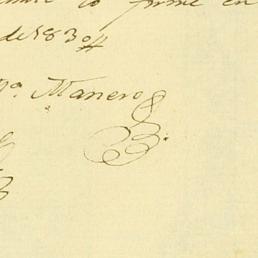 lo firmé en
de 1830
Manero